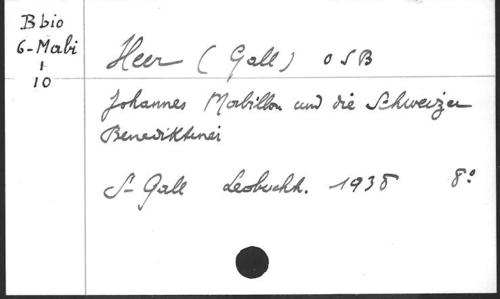 B bio
6-Mabi
+
10
Heer (Gall) OSB
Johannes Mabillon und die Schweizer
Benediktiner
S- Gall Leobuchh. 1938 8°